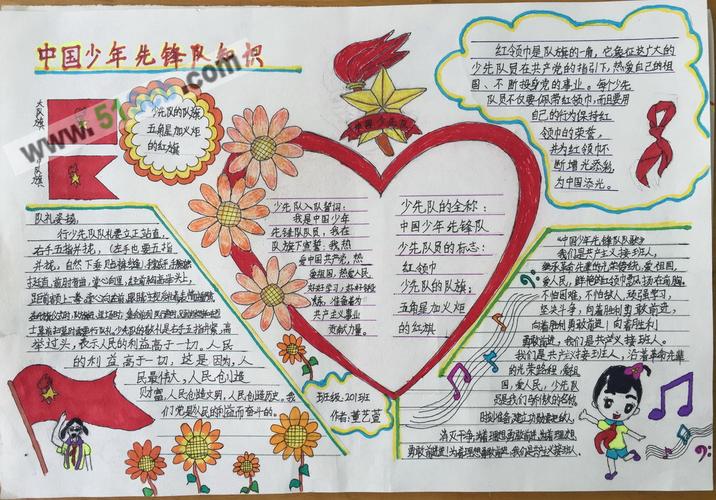 中国少年先锋队知识
大队旗
队旗
少先队的队旗
五角星加火炬
的红旗
中国少先队
红领巾是队旗的一角,它象征这广大的
少先队员在共产党的指引下,热爱自己的祖
国、不断投身党的事业。每个少先
队员不仅要佩带红领巾,而且要用
自己的行为保持红
领巾的荣誉,
并为红领巾不
断增光添彩,
为中国添光。
队礼姿扬:
行少先队队礼要立正站直,
右手五指并拢,(左手也要五指
并拢,自然下垂
举过头,表示人民的利益高于一切。人民
的利益高于一切,这是因为,人
民最伟大,人民创造
财富,人民创造文明,人民创造历史。我
们党是人民的利益而奋斗的。
少先队入队誓词:
我是中国少年
先锋队队员,我在
队旗下宣誓:我热
爱中国共产党,热
爱祖国,热爱人民,
好好学习,好好锻
炼,准备着为
共产主义事业
贡献力量。
少先队的全称:
中国少年先锋队
少先队员的标志:
红领巾
少先队的队旗:
五角星加火炬
的红旗
班级:201班
作者:董芝萱
《中国少年先锋队队歌》
我们是共产主义接班人,
继承革命先辈的光荣传统,爱祖国,
爱人民,鲜艳的红领巾飘扬在前胸,
不怕困难,不怕敌人,顽强学习,
坚决斗争,向着胜利勇敢前进,
向着胜利勇敢前进,向着胜利
勇敢前进,我们是共产主义接班人。
我们是共产主义接班人,沿着革命先辈
的光荣路程,爱祖
国,爱人民,少先队
员是我们骄傲的名称。
时刻准备建立功勋要把敌人
消灭干净,为着理想勇敢前进,为着理想
勇敢前进,为着理想勇敢前进,我们是共产主义接班人。